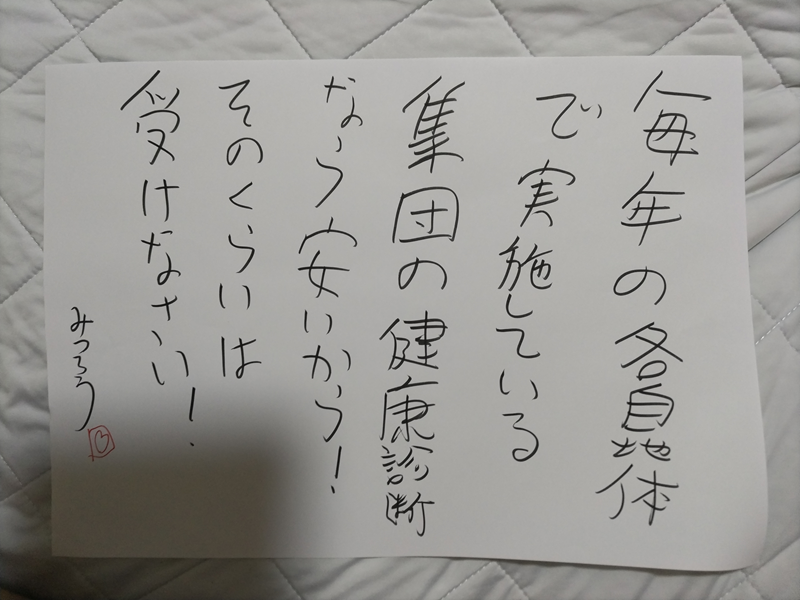 毎年の各自地体
で実施している
集団の健康診断
なら安いから！
そのくらいは
受けなさい！
みつろう